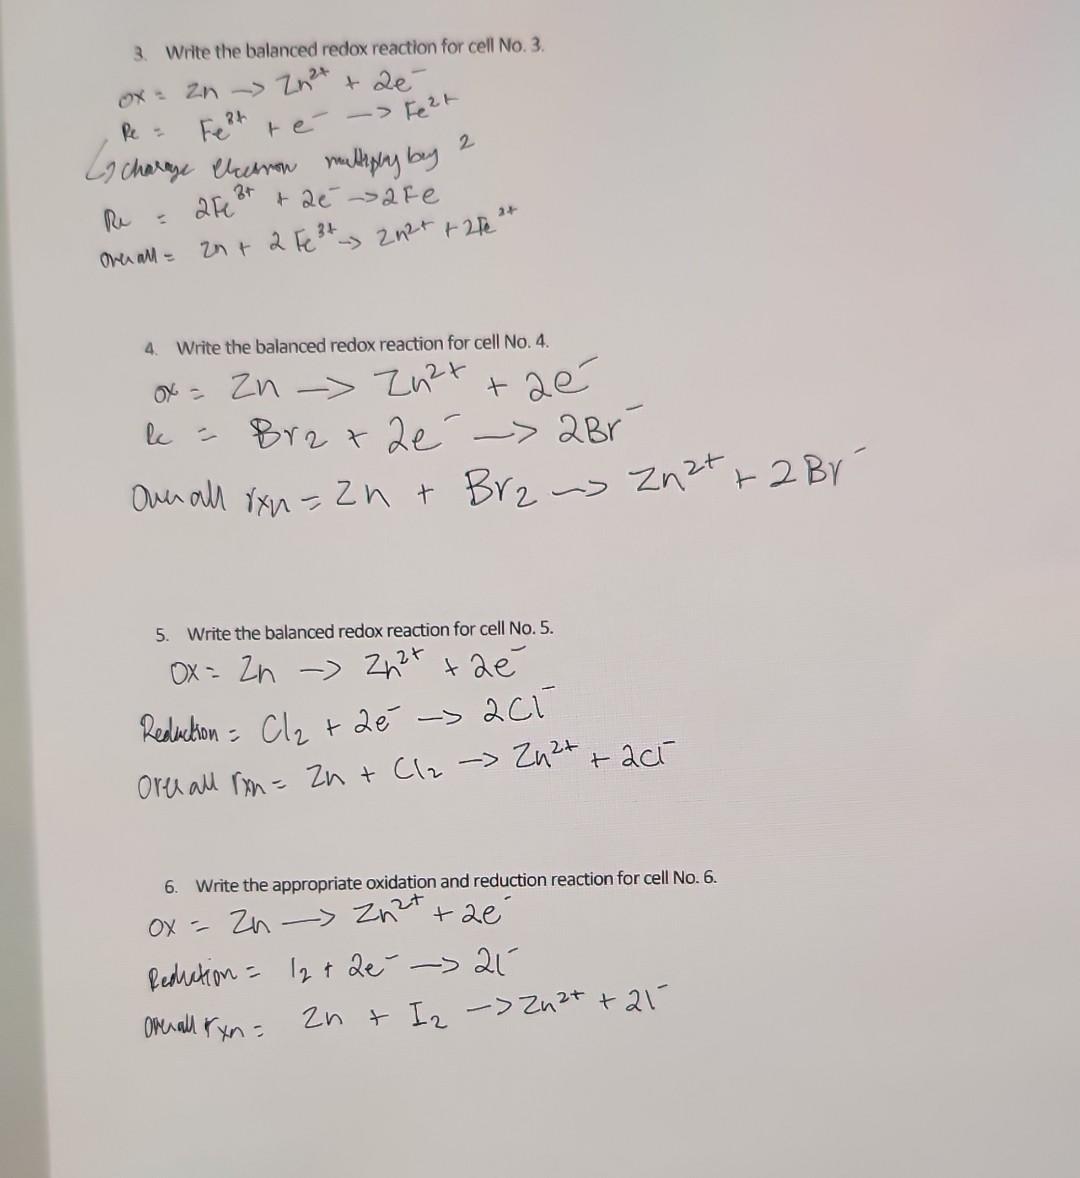 3. Write the balanced redox reaction for cell No. 3.
OX = Zn -> Zn²⁺ + 2e⁻
Re = Fe³⁺ + e⁻ -> Fe²⁺
↳ charge electron multiply by 2
Re = 2Fe³⁺ + 2e⁻ -> 2Fe
Overall = Zn + 2Fe³⁺ -> Zn²⁺ + 2Fe²⁺
4. Write the balanced redox reaction for cell No. 4.
OX = Zn -> Zn²⁺ + 2e⁻
Re = Br₂ + 2e⁻ -> 2Br⁻
Overall rxn = Zn + Br₂ -> Zn²⁺ + 2Br⁻
5. Write the balanced redox reaction for cell No. 5.
OX = Zn -> Zn²⁺ + 2e⁻
Reduction = Cl₂ + 2e⁻ -> 2Cl⁻
Overall rxn = Zn + Cl₂ -> Zn²⁺ + 2Cl⁻
6. Write the appropriate oxidation and reduction reaction for cell No. 6.
OX = Zn -> Zn²⁺ + 2e⁻
Reduction = I₂ + 2e⁻ -> 2I⁻
Overall rxn = Zn + I₂ -> Zn²⁺ + 2I⁻